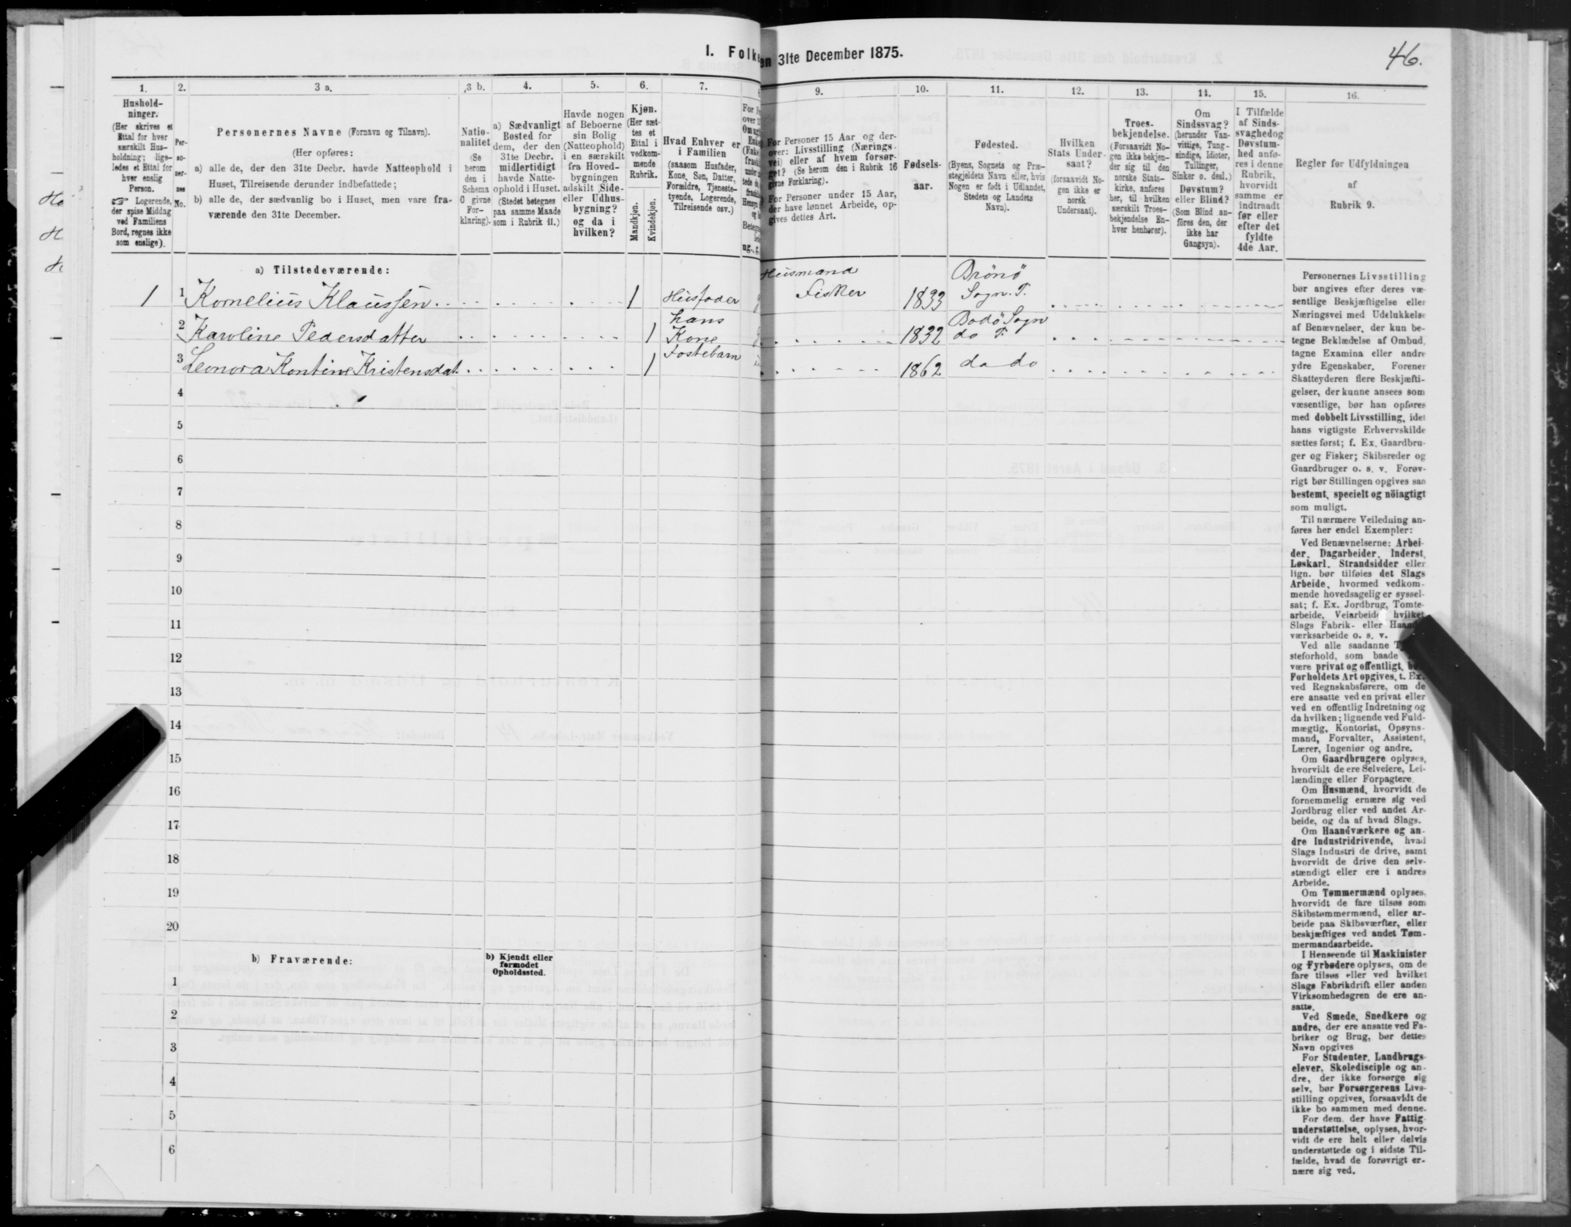 46.
I. Folke
en 31te December 1875.
1. 2. 3 a. 3 b. 4. 5. 6. 7. 9. 10. 11. 12. 13. 14. 15. 16.
Hushold-
ninger.
(Her skrives et
Ettal for hver
særskilt Hus-
holdning; lige-
ledes et Ettal for
hver enslig
Person.
☞ Logerende,
der spise Middag
ved Familiens
Bord, regnes ikke
som enslige).
Per-
so-
ner-
nes
No.
Personernes Navne (Fornavn og Tilnavn).
(Her opføres:
a) alle de, der den 31te Decbr. havde Natteophold i
Huset, Tilreisende derunder indbefattede;
b) alle de, der sædvanlig bo i Huset, men vare fra-
værende den 31te December.
Natio-
nalitet
(Se
herom
den i
Schema
O givne
For-
klaring).
a) Sædvanligt
Bosted for
dem, der den
31te Decbr.
midlertidigt
havde Natte-
ophold i Huset.
(Stedet betegnes
paa samme Maade
som i Rubrik 11.)
Havde nogen
af Beboerne
sin Bolig
(Natteophold)
i en særskilt
fra Hoved-
bygningen
adskilt Side-
eller Udhus-
bygning?
og da i
hvilken?
Kjøn.
(Her sæt-
tes et
Ettal i
vedkom-
mende
Rubrik.
Mandkjøn.
Kvindekjøn.
Hvad Enhver er
i Familien
(saasom Husfader,
Kone, Søn, Datter,
Forældre, Tjeneste-
tyende, Logerende,
Tilreisende osv.)
For Personer 15 Aar og der-
over: Livsstilling (Nærings-
vei) eller af hvem forsør-
get? (Se herom den i Rubrik 16
givne Forklaring).
For Personer under 15 Aar,
der have lønnet Arbeide, op-
gives dettes Art.
Fødsels-
aar.
Fødested.
(Byens, Sognets og Præ-
stegjeldets Navn eller, hvis
Nogen er født i Udlandet,
Stedets og Landets
Navn).
Hvilken
Stats Under-
saat?
(forsaavidt No-
gen ikke er
norsk
Undersaat).
Troes-
bekjendelse.
(Forsaavidt No-
gen ikke bekjen-
der sig til den
norske Stats-
kirke, anføres
her, til hvilken
særskilt Troes-
bekjendelse En-
hver henhører).
Om
Sindssvag?
(herunder Van-
vittige, Tung-
sindige, Idioter,
Tullinger,
Sinker o. desl.)
Døvstum?
eller Blind?
(Som Blind an-
føres den, der
ikke har
Gangsyn).
I Tilfælde
af Sinds-
svaghedog
Døvstum-
hed anfø-
res i denne
Rubrik,
hvorvidt
samme er
indtraadt
før eller
efter det
fyldte
4de Aar.
Regler for Udfyldningen
af
Rubrik 9.
a) Tilstedeværende:
1 1 Kornelius Klaussen 1 Husfader Husmand Fisker 1833 Brönö Sogn. P.
2 Karoline Pedersdatter 1 hans Kone 1832 Bodø Sogn do P.
3 Leonora Kontine Kristensdat 1 Fostebarn 1862 do do
4
5
6
7
8
9
10
11
12
13
14
15
16
17
18
19
20
b) Fraværende:
b) Kjendt eller
formodet
Opholdssted.
1
2
3
4
5
6
Personernes Livsstilling
bør angives efter deres væ-
sentlige Beskjæftigelse eller
Næringsvei med Udelukkelse
af Benævnelser, der kun be-
tegne Beklædelse af Ombud,
tagne Examina eller andre
ydre Egenskaber. Forener
Skatteyderen flere Beskjæfti-
gelser, der kunne ansees som
væsentlige, bør han opføres
med dobbelt Livsstilling, idet
hans vigtigste Erhvervskilde
sættes først; f. Ex. Gaardbru-
ger og Fisker; Skibsreder og
Gaardbruger o. s. v. Forøv-
rigt bør Stillingen opgives saa
bestemt, specielt og nöiagtigt
som muligt.
Til nærmere Veiledning an-
føres her endel Exempler:
Ved Benævnelserne: Arbei-
der, Dagarbeider, Inderst,
Løskarl, Strandsidder eller
lign. bør tilføies det Slags
Arbeide, hvormed vedkom-
mende hovedsagelig er syssel-
sat; f. Ex. Jordbrug, Tomte-
arbeide, Veiarbeide, hvilket
Slags Fabrik- eller
værksarbeide o. s. v.
Ved alle saadanne
steforhold, som baade
være privat og offentligt,
Forholdets Art opgives, t. Ex.
ved Regnskabsførere, om de
ere ansatte ved en privat eller
ved en offentlig Indretning og
da hvilken; lignende ved Fuld-
mægtig, Kontorist, Opsyns-
mand, Forvalter, Assistent,
Lærer, Ingeniør og andre.
Om Gaardbrugere oplyses,
hvorvidt de ere Selveiere, Lei-
lændinge eller Forpagtere.
Om Husmænd, hvorvidt de
fornemmelig ernære sig ved
Jordbrug eller ved andet Ar-
beide, og da af hvad Slags.
Om Haandværkere og an-
dre Industridrivende, hvad
Slags Industri de drive, samt
hvorvidt de drive den selv-
stændigt eller ere i andres
Arbeide.
Om Tømmermænd oplyses,
hvorvidt de fare tilsøs som
Skibstømmermænd, eller ar-
beide paa Skibsværfter, eller
beskjæftiges ved andet Tøm-
mermandsarbeide.
I Henseende til Maskinister
og Fyrbødere oplyses, om de
fare tilsøs eller ved hvilket
Slags Fabrikdrift eller anden
Virksomhedsgren de ere an-
satte.
Ved Smede, Snedkere og
andre, der ere ansatte ved Fa-
briker og Brug, bør dettes
Navn opgives
For Studenter, Landbrugs-
elever, Skoledisciple og an-
dre, der ikke forsørge sig
selv, bør Forsørgerens Livs-
stilling opgives, forsaavidt de
ikke bo sammen med denne.
For dem, der have Fattig-
understøttelse, oplyses, hvor-
vidt de ere helt eller delvis
understøttede og i sidste Til-
fælde, hvad de forøvrigt er-
nære sig ved.